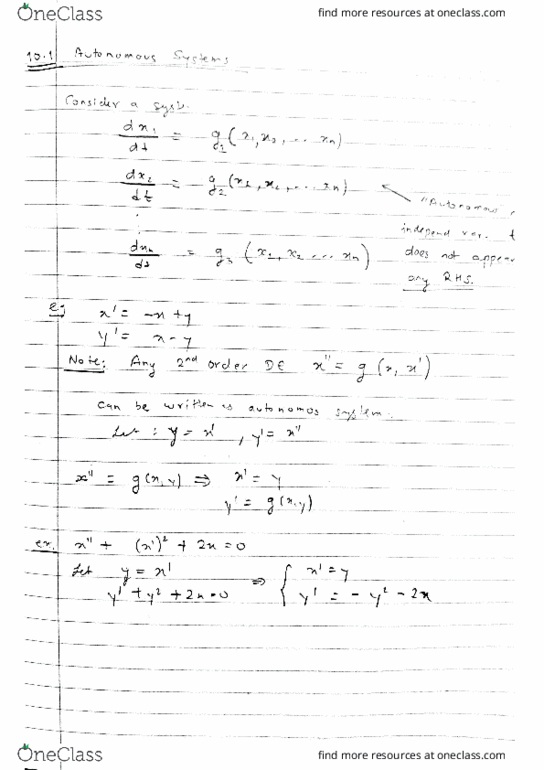 OneClass find more resources at oneclass.com
10.1 Autonomous Systems
Consider a syst.
dx₁/dt = g₁(x₁, x₂, ... xₙ)
dx₂/dt = g₂(x₁, x₂, ... xₙ)
"Autonomous,
independ var. t
dxₙ/dt = gₙ(x₁, x₂ ... xₙ)
does not appear
any RHS.
eg x' = -x + y
y' = x - y
Note: Any 2nd order DE x" = g(x, x')
can be written is autonomos system.
Let : y = x' , y' = x"
x" = g(x,y) ⇒ x' = y
y' = g(x,y)
ex. x" + (x')² + 2x = 0
Let y = x'
y' + y² + 2x = 0 ⇒ { x' = y
y' = - y² - 2x
OneClass find more resources at oneclass.com